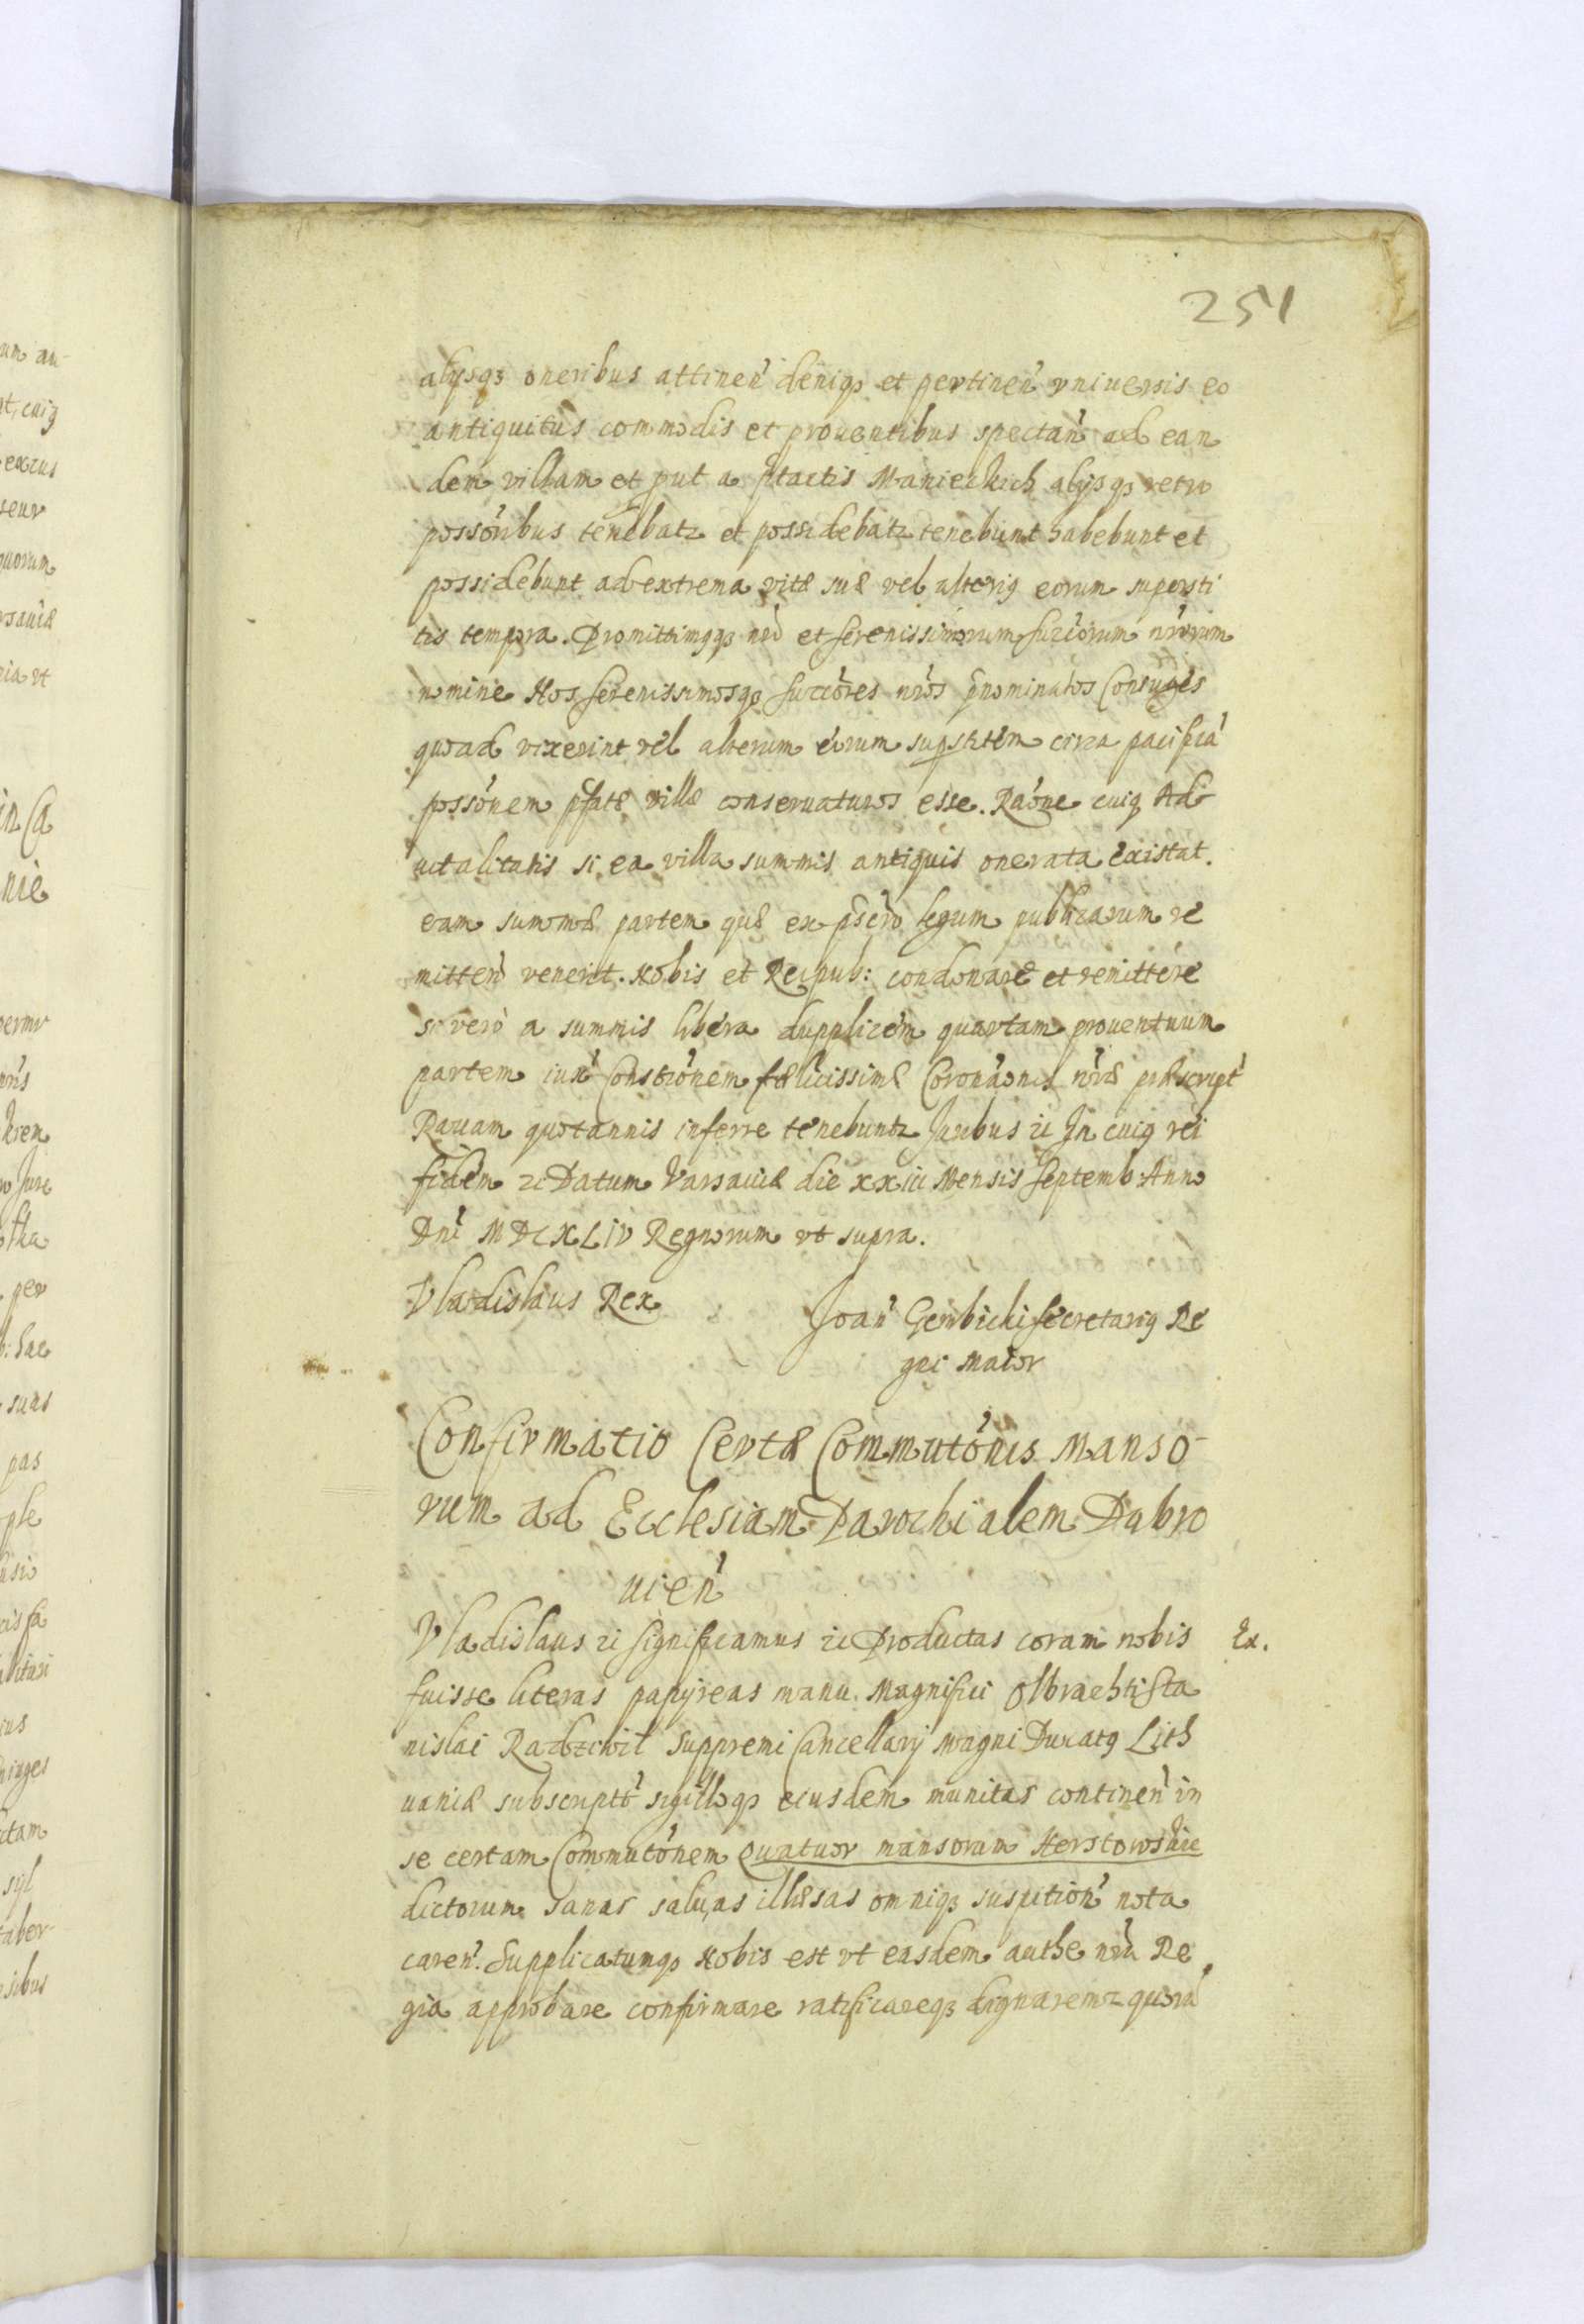 251
alijsq3 oneribus attinen̄ deniq3 et pertinen̄ vniuersis eo
antiquitus commodis et prouentibus spectan̄ ad ean
dem villam et put a ptactis Manieckich alijsq3 retro
possoribus tenebatz et possidebatz tenebunt habebunt et
possidebunt ad extrema vitæ suæ vel alterig eorum supersti
tis tempora. Promittimgq3 nro et Serenissimorum succorum nrorum
nomine Nos Serenissimosq3 succores nros pnominatos Coniuges
quoad vixerint vel alterum eorum supstitem circa pacificā
possōnem pfatæ villæ conseruaturos esse. Raōne cuig Ad
uitalitatis si ea villa summis antiquis onerata existat.
eam summæ partem quæ ex pscro legum publicarum re
mitten̄ venerit. Nobis et Reipub: condonare et remittere
si vero a summis libera dupplicem quartam prouentuum
partem iux Constōnem fælicissimæ Coronaōnis nræ præscript
Rauam quotannis inferre tenebuntz Juribus zc In cuig rei
fidem zc Datum Varsauiæ die xxiii Mensis Septemb Anno
Dni MDCXLIV Regnorum vt supra.
Vladislaus Rex
Joan̄ Gembicki Secretarig Re
gni Maior
Confirmatio Certæ Commutōnis Manso-
rum ad Ecclesiam Parochialem Dabro
uien̄
Vladislaus zc Significamus zc Productas coram nobis
Ex.
fuisse literas papyreas manu Magnifici Olbrachti Sta
nislai Radziwil Suppremi Cancellarij Magni Ducatg Lith
uaniæ subscriptt sigilloq3 eiusdem munitas continen̄ in
se certam Commutōnem quatuor mansorum Herstowskie
dictorum sanas saluas illæsas omniq3 suspition̄ nota
caren̄. Supplicatumq3 Nobis est vt easdem authe nrā Re
gia approbare confirmare ratificareq3 dignaremz quorū